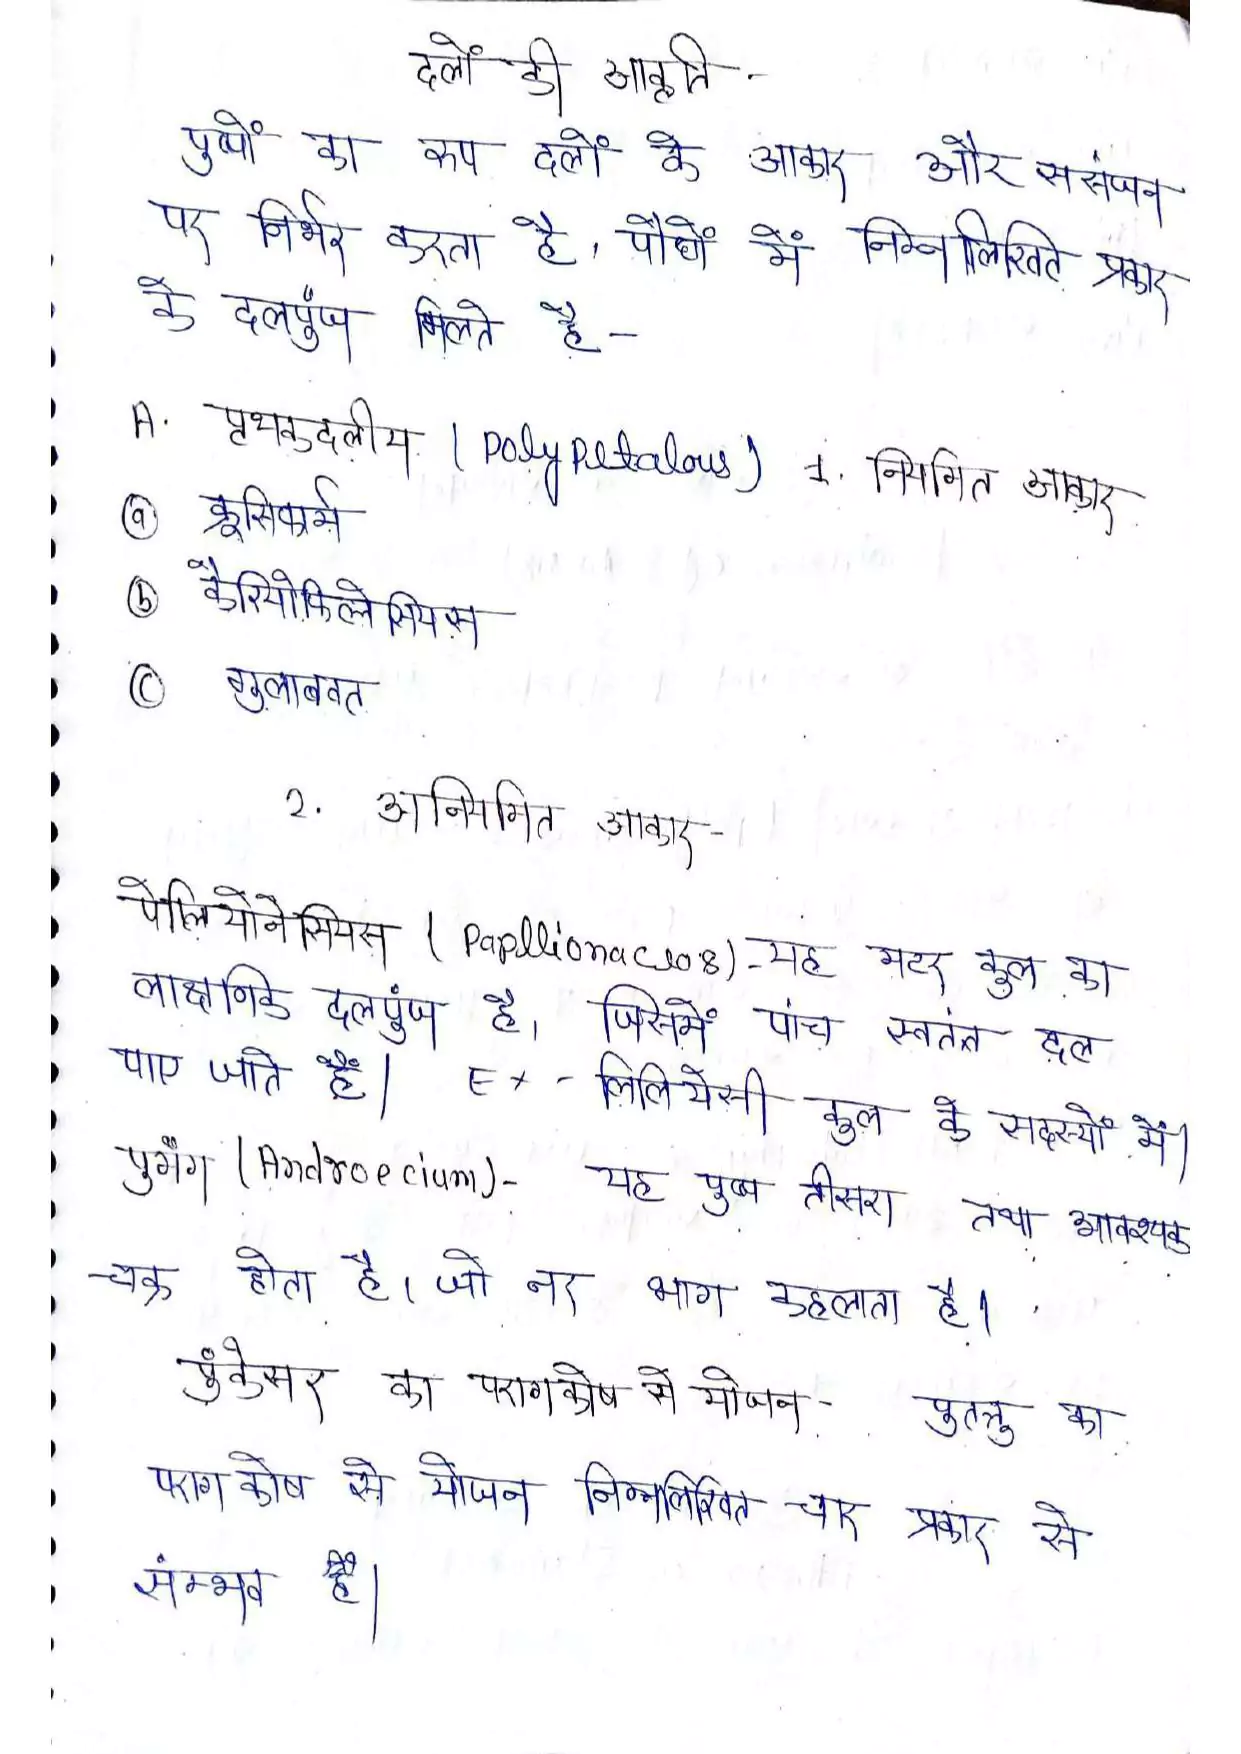 दलों की आकृति -
पुष्पों का रूप दलों के आकार और ससंजन
पर निर्भर करता है, पौधों में निम्नलिखित प्रकार
के दलपुँज मिलते है -
A. पृथकदलीय (Polypetalous) 1. नियमित आकार
(a) क्रूसिफार्म
(b) कैरियोफिल्लेसियस
(c) गुलाबवत
2. अनियमित आकार -
पेलियोनेसियस (Papllionaceos) - यह मटर कुल का
लाक्षणिक दलपुंज है, जिसमें पांच स्वतंत्र दल
पाए जाते हैं। Ex - लिलियेसी कुल के सदस्यों में।
पुमंग (Androecium) - यह पुष्प तीसरा तथा आवश्यक
चक्र होता है, जो नर भाग कहलाता है।
पुंकेसर का परागकोष से योजन - पुतन्तु का
परागकोष से योजन निम्नलिखित चार प्रकार से
संम्भव है।